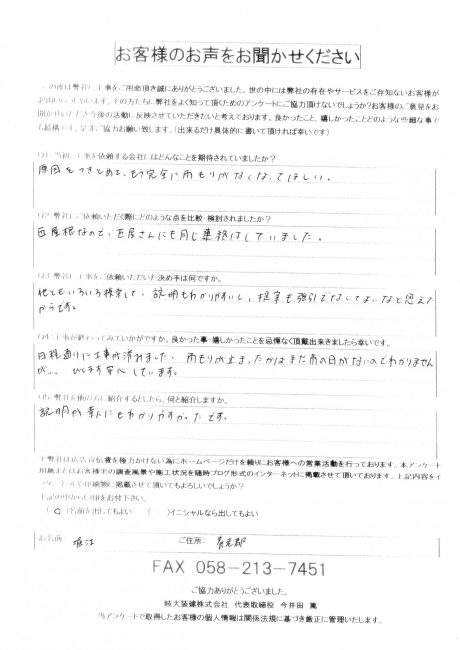 お客様のお声をお聞かせください
この度は弊社に工事をご用命頂き誠にありがとうございました。世の中には弊社の存在やサービスをご存知ないお客様が
弊社をよく知って頂くためのアンケートにご協力頂けないでしょうか?お客様のご意見をお
聞かせいただき今後の活動に反映させていただきたいと考えております。良かったこと、嬉しかったことどのような些細な事で
も結構です。是非ご協力お願い致します。(出来るだけ具体的に書いて頂ければ幸いです)
Q1.当初、工事を依頼する会社にはどんなことを期待されていましたか?
原因をつきとめて、もう完全に雨もりがなくなってほしい。
Q2.弊社にご依頼いただく際にどのような点を比較・検討されましたか?
瓦屋根なので、瓦屋さんにも同じ連絡はしていました。
Q3.弊社に工事をご依頼いただいた決め手は何ですか。
他にもいろいろ検索して、説明もわかりやすいし、提案も強引でなくしてよいなと思えた
からです。
Q4.工事が終わってみていかがですか。良かった事・嬉しかったことを忌憚なく頂戴出来きましたら幸いです。
日程通りに工事が済れました。雨もりが止まったかはまだ雨の日がないのでわかりません
が… ひとまず安心しています。
Q5.弊社を他の方に紹介するとしたら、何と紹介しますか。
説明が素人にもわかりやすかったです。
弊社は広告宣伝費を極力かけない為にホームページだけを頼りにお客様への営業活動を行っております。本アンケート
用紙またはお客様宅の調査風景や施工状況を随時ブログ形式のインターネットに掲載させて頂いております。上記内容をイ
ンターネットや印刷物に掲載させて頂いてもよろしいでしょうか?
上記の中から○印をお付下さい。
(○)名前を出してもよい ( )イニシャルなら出してもよい
お名前: 堀江 ご住所: 養老郡
FAX 058-213-7451
ご協力ありがとうございました。
岐大装建株式会社 代表取締役 今井田 薫
当アンケートで取得したお客様の個人情報は関係法規に基づき厳正に管理いたします。